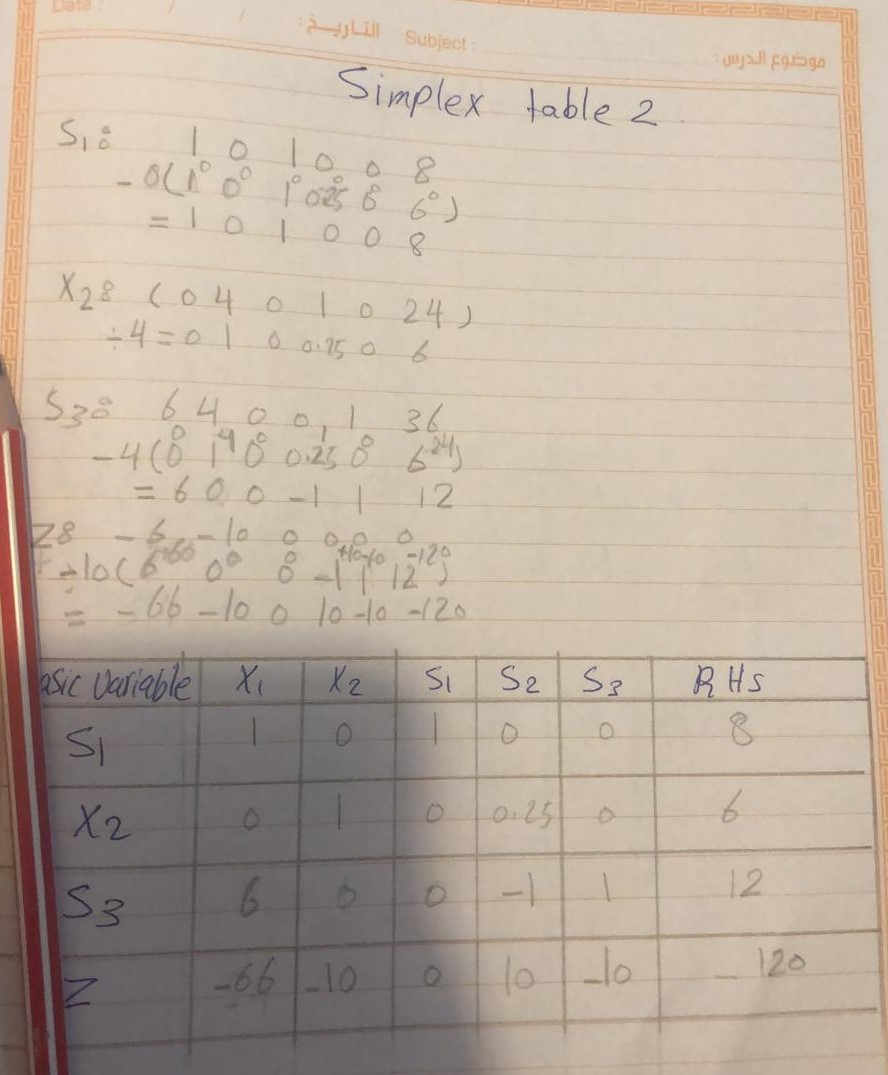 Date : / /
التاريخ: Subject :
موضوع الدرس:
Simplex table 2
S₁: 1 0 1 0 0 8
-0(1⁰ 0⁰ 1⁰ 0.25⁰ 0⁰ 6⁰)
= 1 0 1 0 0 8
X₂: (0 4 0 1 0 24)
÷4 = 0 1 0 0.25 0 6
S₃: 6 4 0 0 1 36
-4(0⁰ 1⁴ 0⁰ 0.25¹ 0⁰ 6²⁴)
= 6 0 0 -1 1 12
Z: -6 -10 0 0 0 0
-10(6⁻⁶⁰ 0⁰ 0⁰ -1⁺¹⁰ 1⁻¹⁰ 12⁻¹²⁰)
= -66 -10 0 10 -10 -120
asic variable X₁ X₂ S₁ S₂ S₃ RHS
S₁ 1 0 1 0 0 8
X₂ 0 1 0 0.25 0 6
S₃ 6 0 0 -1 1 12
Z -66 -10 0 10 -10 -120